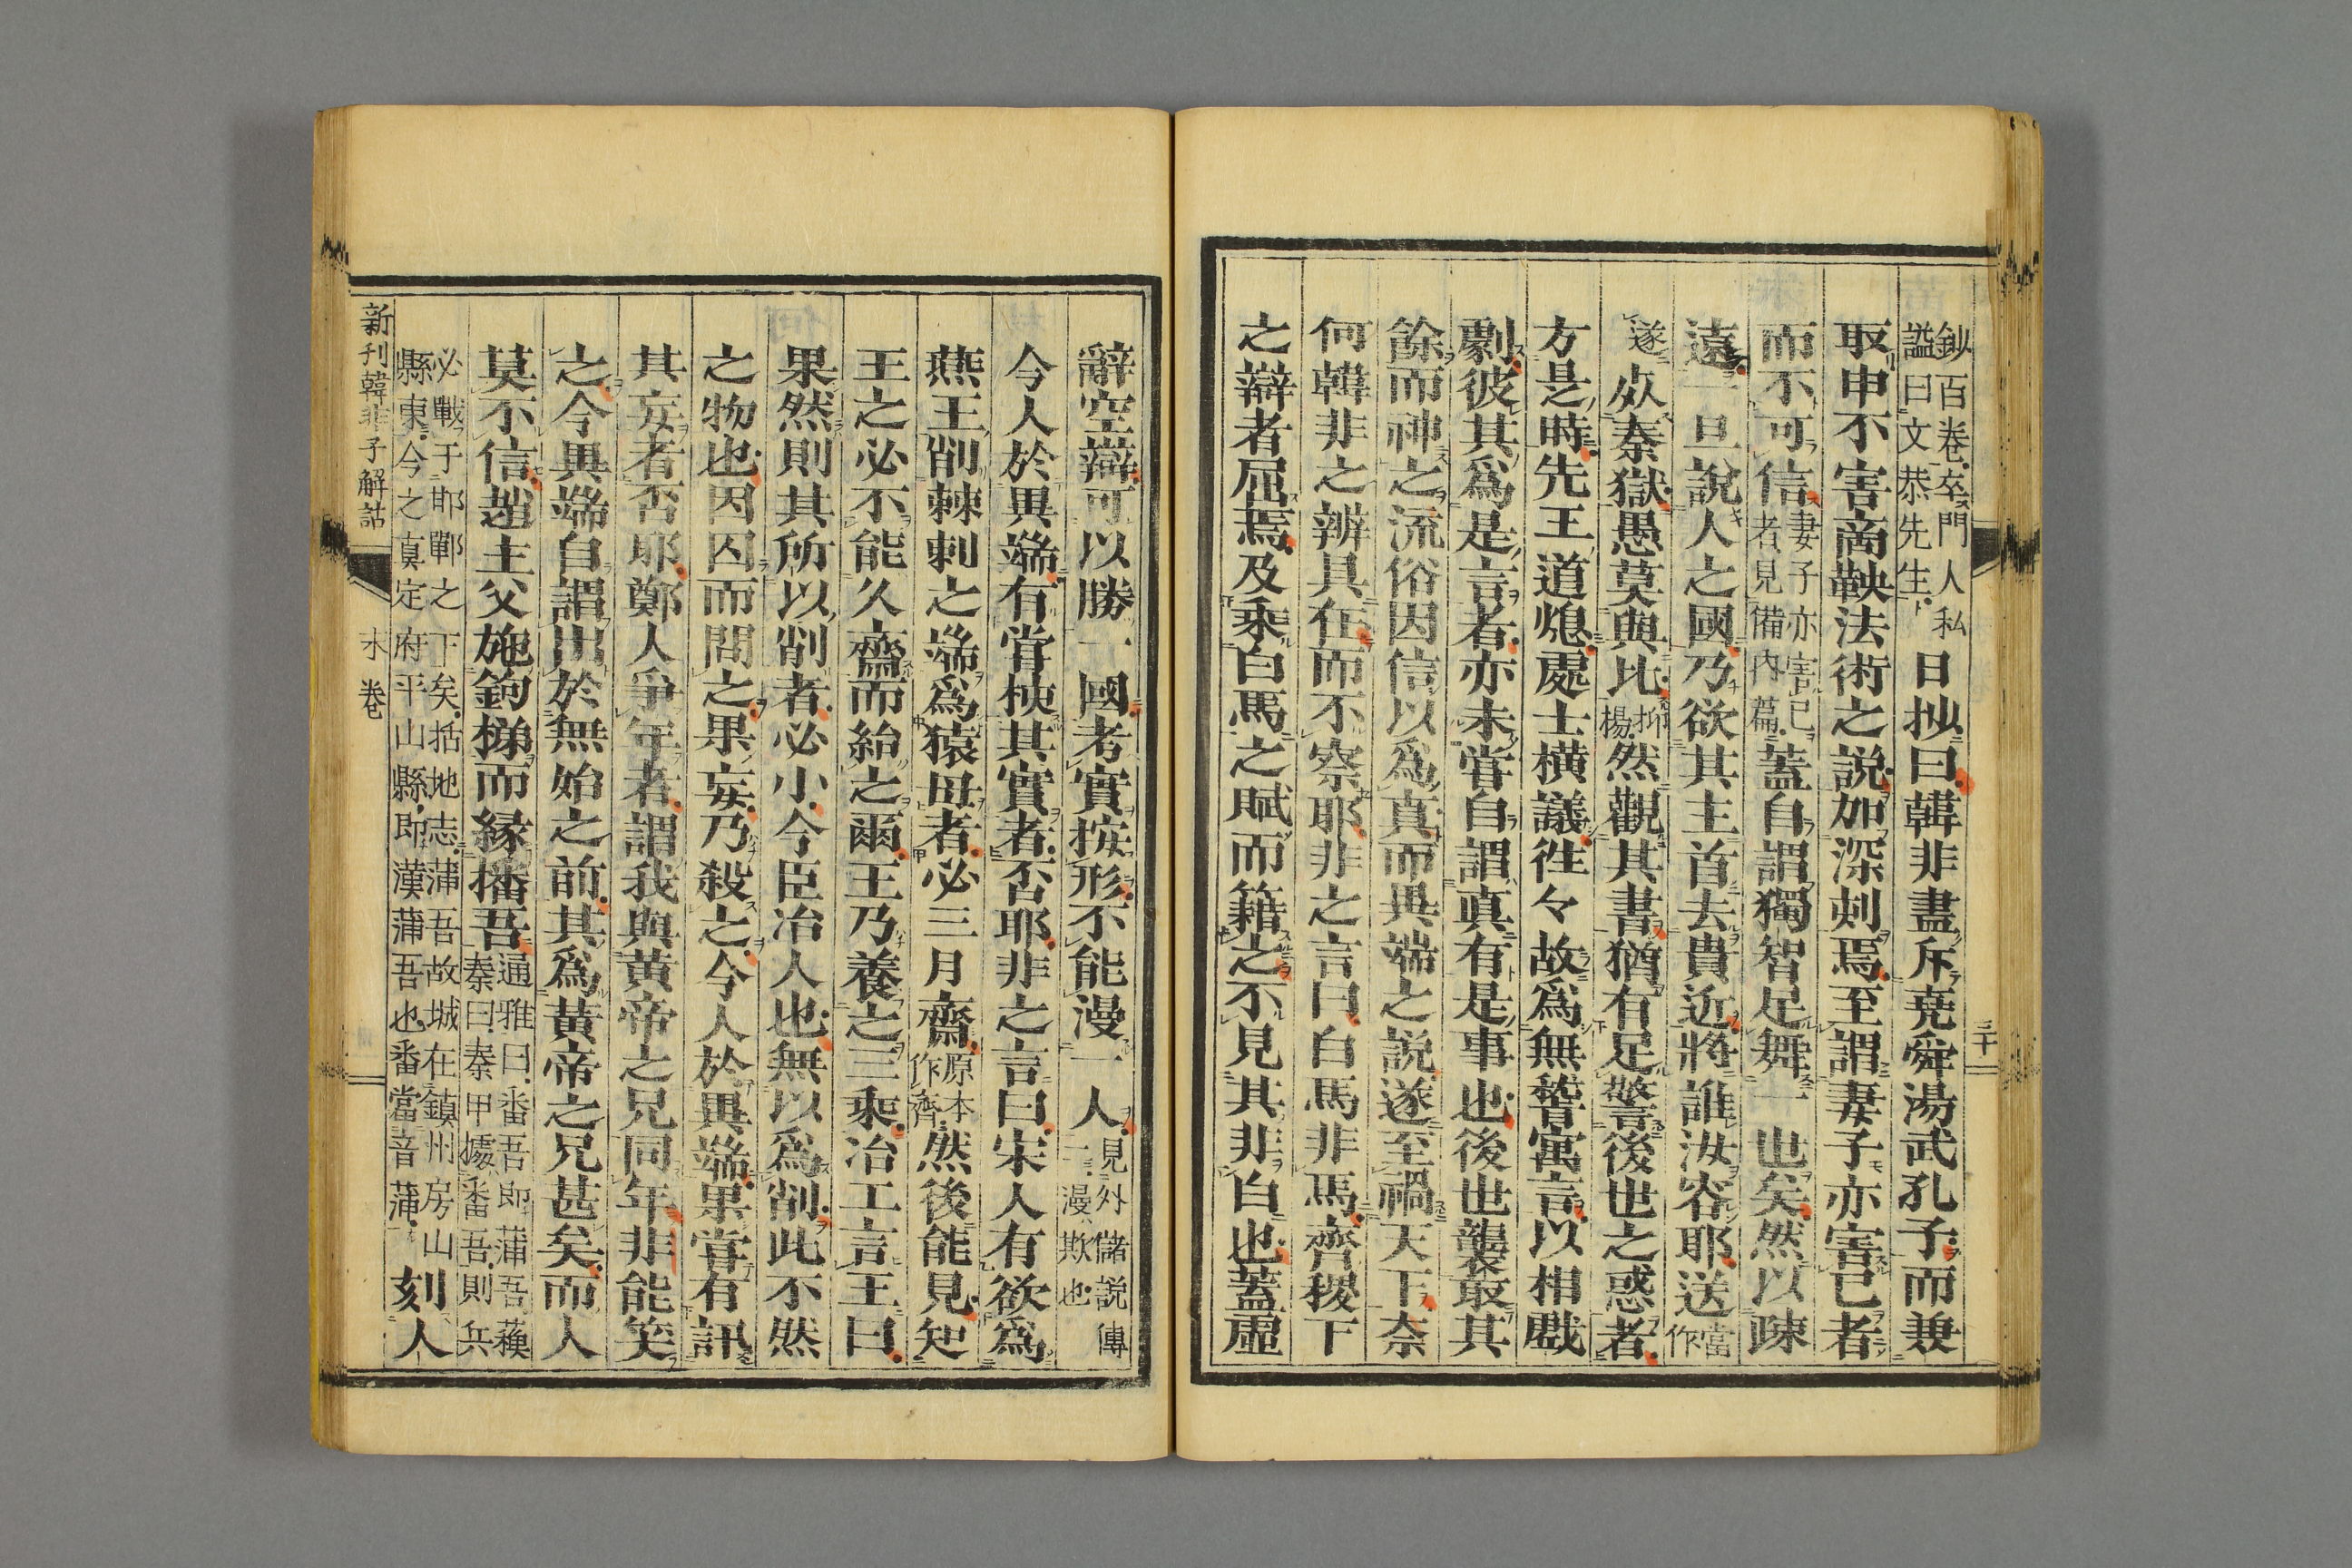 鈔百卷卒門人私
謚曰文恭先生
日抄曰韓非盡斥堯舜湯武孔子而兼
取申不害商鞅法術之説加深刻焉至謂妻子亦害己者
而不可信
妻子亦害己
者見備內篇
蓋自謂獨智足舞一世矣然以疎
遠一旦說人之國乃欲其主首去貴近將誰汝容耶送
當
作
遂
歿秦獄愚莫與比
抑
楊
然觀其書猶有足警後世之惑者
方是時先王道熄處士橫議徃々故為無稽寓言以相戲
劇彼其為是言者亦未甞自謂真有是事也後世襲㪍其
餘而神之流俗因信以為真而異端之說遂至禍天下奈
何韓非之辨具在而不察耶非之言曰白馬非馬齊稷下
之辯者屈焉及乘白馬之賦而籍之不見其非白也蓋虛
辭空辯可以勝一國考實按形不能漫一人
見外儲説傳
二漫欺也
今人於異端有甞挾其實者否耶非之言曰宋人有欲為
燕王削棘刺之端為猿母者必三月齋
原本
作齊
然後能見知
王之必不能久齋而紿之爾王乃養之三乘冶工言王曰
果然則其所以削者必小今臣冶人也無以為削此不然
之物也因囚而問之果妄乃殺之今人於異端果甞有訊
其妄者否耶鄭人爭年者謂我與黃帝之兄同年非能笑
之今異端自謂出於無始之前其為黃帝之兄甚矣而人
莫不信趙主父施鉤梯而緣播吾
通雅曰番吾即蒲吾蘓
秦曰秦甲據番吾則兵
必戰于邯鄲之下矣括地志蒲吾故城在鎮州房山
縣東今之真定府平山縣即漢蒲吾也番當音蒲
刻人
新刊韓非子解詁
卷
三十一